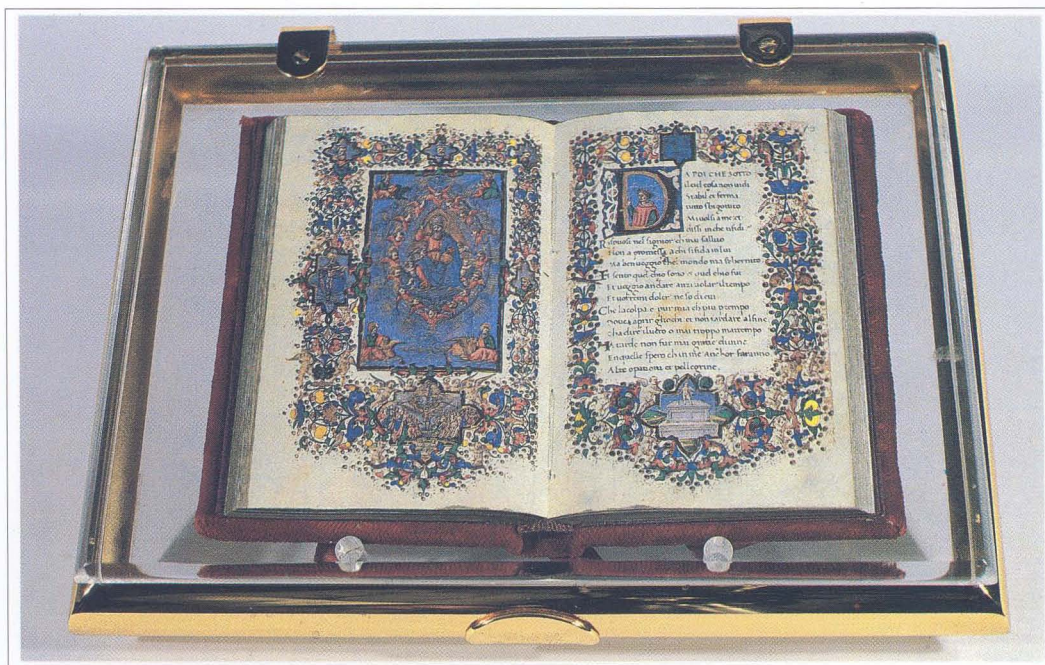 DA POI CHE SOTTO
il ciel cosa non vidi
Stabil et ferma
tutto sbigottito
Mi volsi a me et
dissi in che ti fidi
Risposi nel signor ch mai fallito
Non a promessa a chi si fida in lui
Ma ben veggio che mondo ma schernito
Et sento quel chio sono et quel chio fui
Et veggio andare anzi volar il tempo
Et doler mi vorrei ne so di cui
Che la colpa e pur mia che piu per tempo
Dovea aprir gliocchi et non tardare al fine
cha dire il vero o mai troppo mattempo
Ma tarde non fur mai gratie divine
En quelle spero ch in me anchor faranno
Alte operationi et pellegrine.